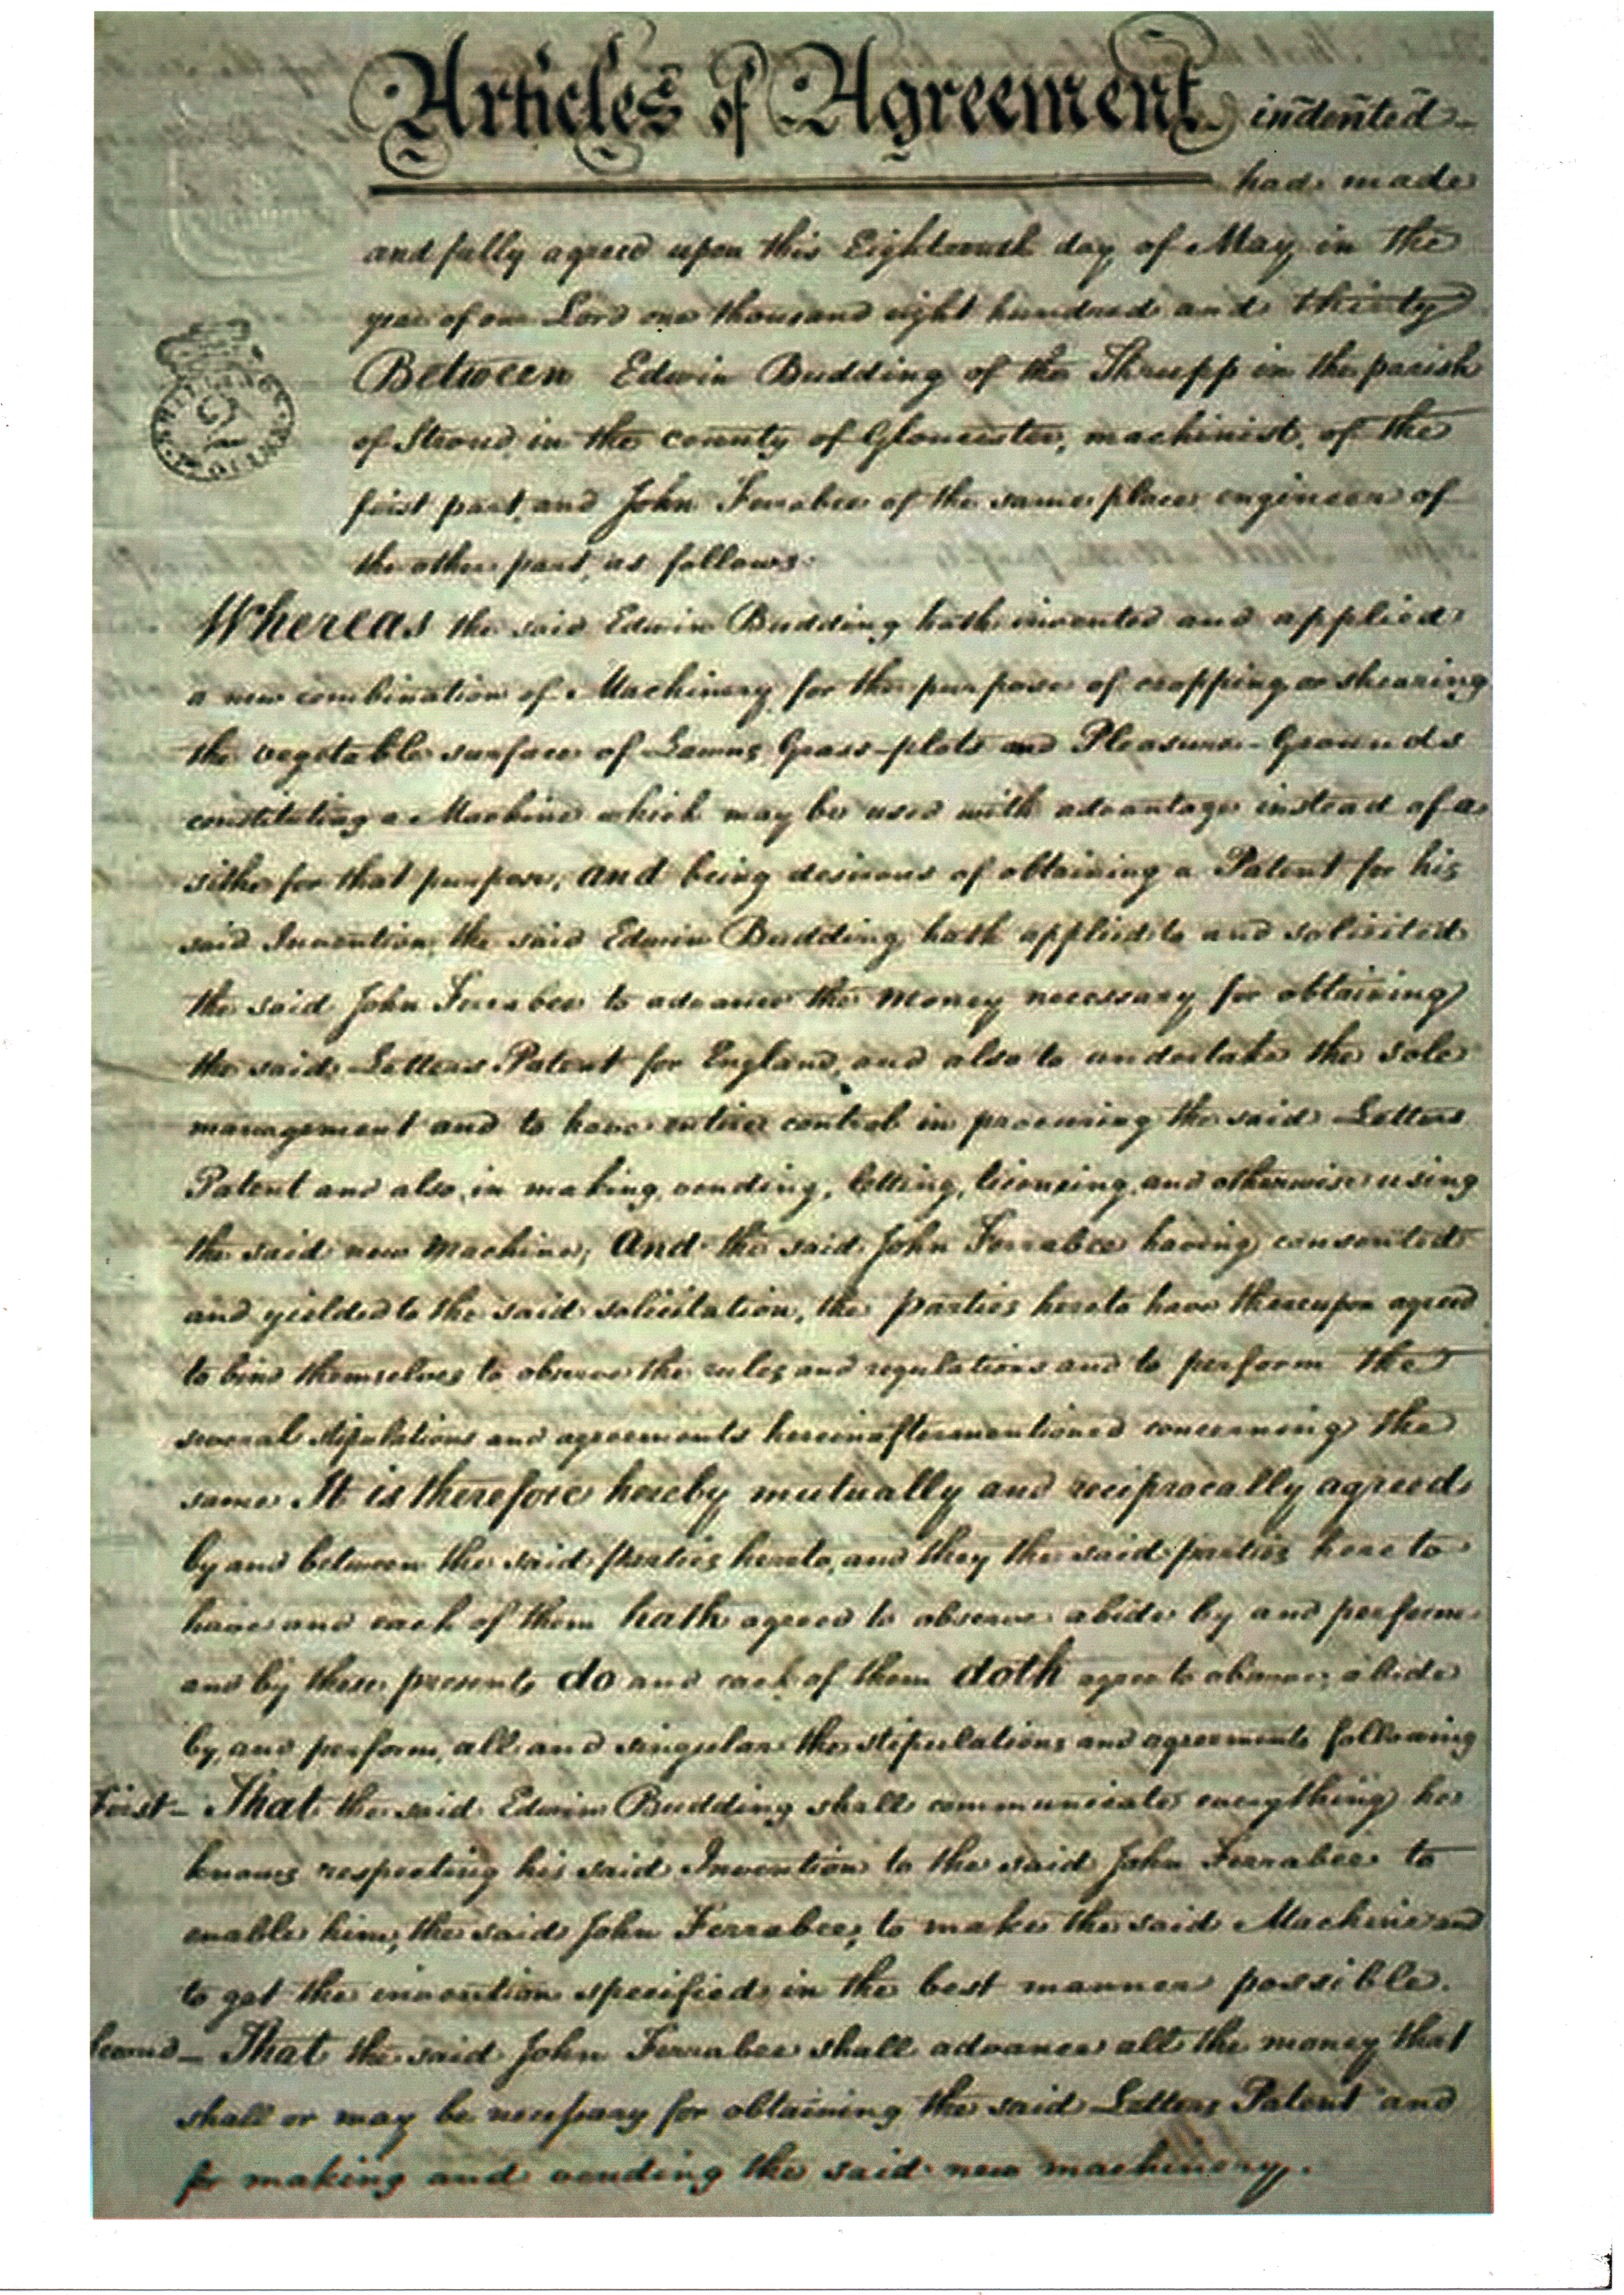 Articles of Agreement indented
had made
and fully agreed upon this Eighteenth day of May in the
year of our Lord one thousand eight hundred and thirty
Between Edwin Budding of the Thrupp in the parish
of Stroud in the county of Gloucester, machinist, of the
first part, and John Ferrabee of the same place engineer of
the other part, as follows
Whereas the said Edwin Budding hath invented and applied
a new combination of Machinery for the purpose of cropping or shearing
the vegetable surface of Lawns Grass-plots and Pleasure-Grounds
constituting a Machine which may be used with advantage instead of a
sithe for that purpose, and being desirous of obtaining a Patent for his
said Invention, the said Edwin Budding hath applied to and solicited
the said John Ferrabee to advance the money necessary for obtaining
the said Letters Patent for England, and also to undertake the sole
management and to have entire control in procuring the said Letters
Patent and also in making, vending, letting, licencing, and otherwise using
the said new Machine; And the said John Ferrabee having consented
and yielded to the said solicitation, the parties hereto have thereupon agreed
to bind themselves to observe the rules and regulations and to perform the
several stipulations and agreements hereinaftermentioned concerning the
same It is therefore hereby mutually and reciprocally agreed
by and between the said parties hereto, and they the said parties hereto
have and each of them hath agreed to observe abide by and perform
and by these presents do and each of them doth agree to observe, abide
by, and perform, all and singular the stipulations and agreements following
First - That the said Edwin Budding shall communicate everything he
knows respecting his said Invention to the said John Ferrabee to
enable him, the said John Ferrabee, to make the said Machine and
to get the invention specified in the best manner possible.
Second - That the said John Ferrabee shall advance all the money that
shall or may be necessary for obtaining the said Letters Patent and
for making and vending the said new machinery.